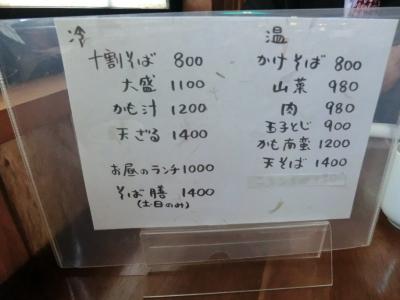 冷
十割そば 800
大盛 1100
かも汁 1200
天ざる 1400
お昼のランチ 1000
そば膳 1400
(土日のみ)
温
かけそば 800
山菜 980
肉 980
玉子とじ 900
かも南蛮 1200
天そば 1400